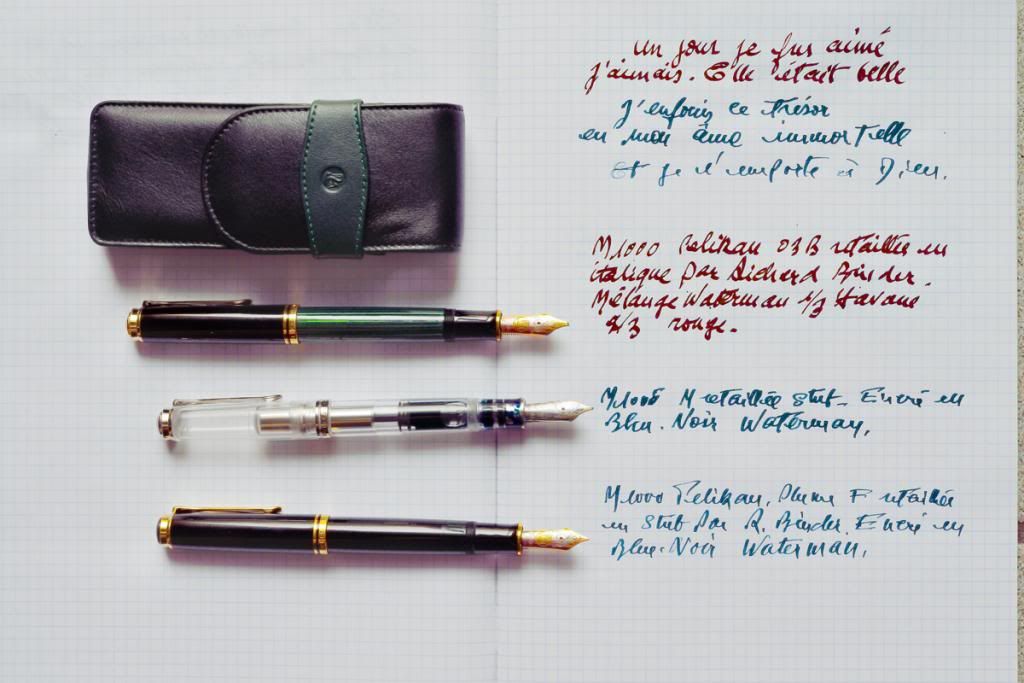 un jour je fus aimé
j'aimais. Elle était belle
J'enfouis ce trésor
en mon âme immortelle
Et je l'emporte à Dieu.
M1000 Pelikan O3B retaillée en
italique par Richard Binder.
Mélange Waterman 1/3 Havane
2/3 rouge.
M retaillée stub. Encré en
Bleu-Noir Waterman.
M1000 Pelikan. Plume F retaillée
en stub par R. Binder. Encré en
Bleu-Noir Waterman.